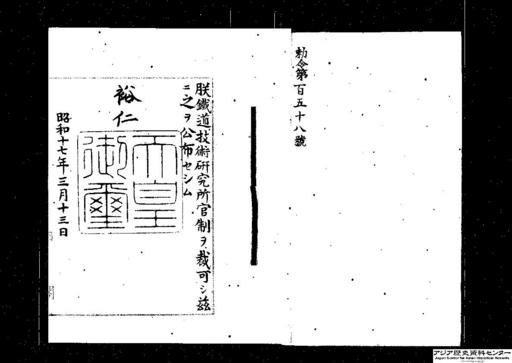 勅令第百五十八號
朕鐵道技術研究所官制ヲ裁可シ茲
ニ之ヲ公布セシム
裕仁
天皇
御璽
昭和十七年三月十三日
アジア歴史資料センター
Japan Center for Asian Historical Records